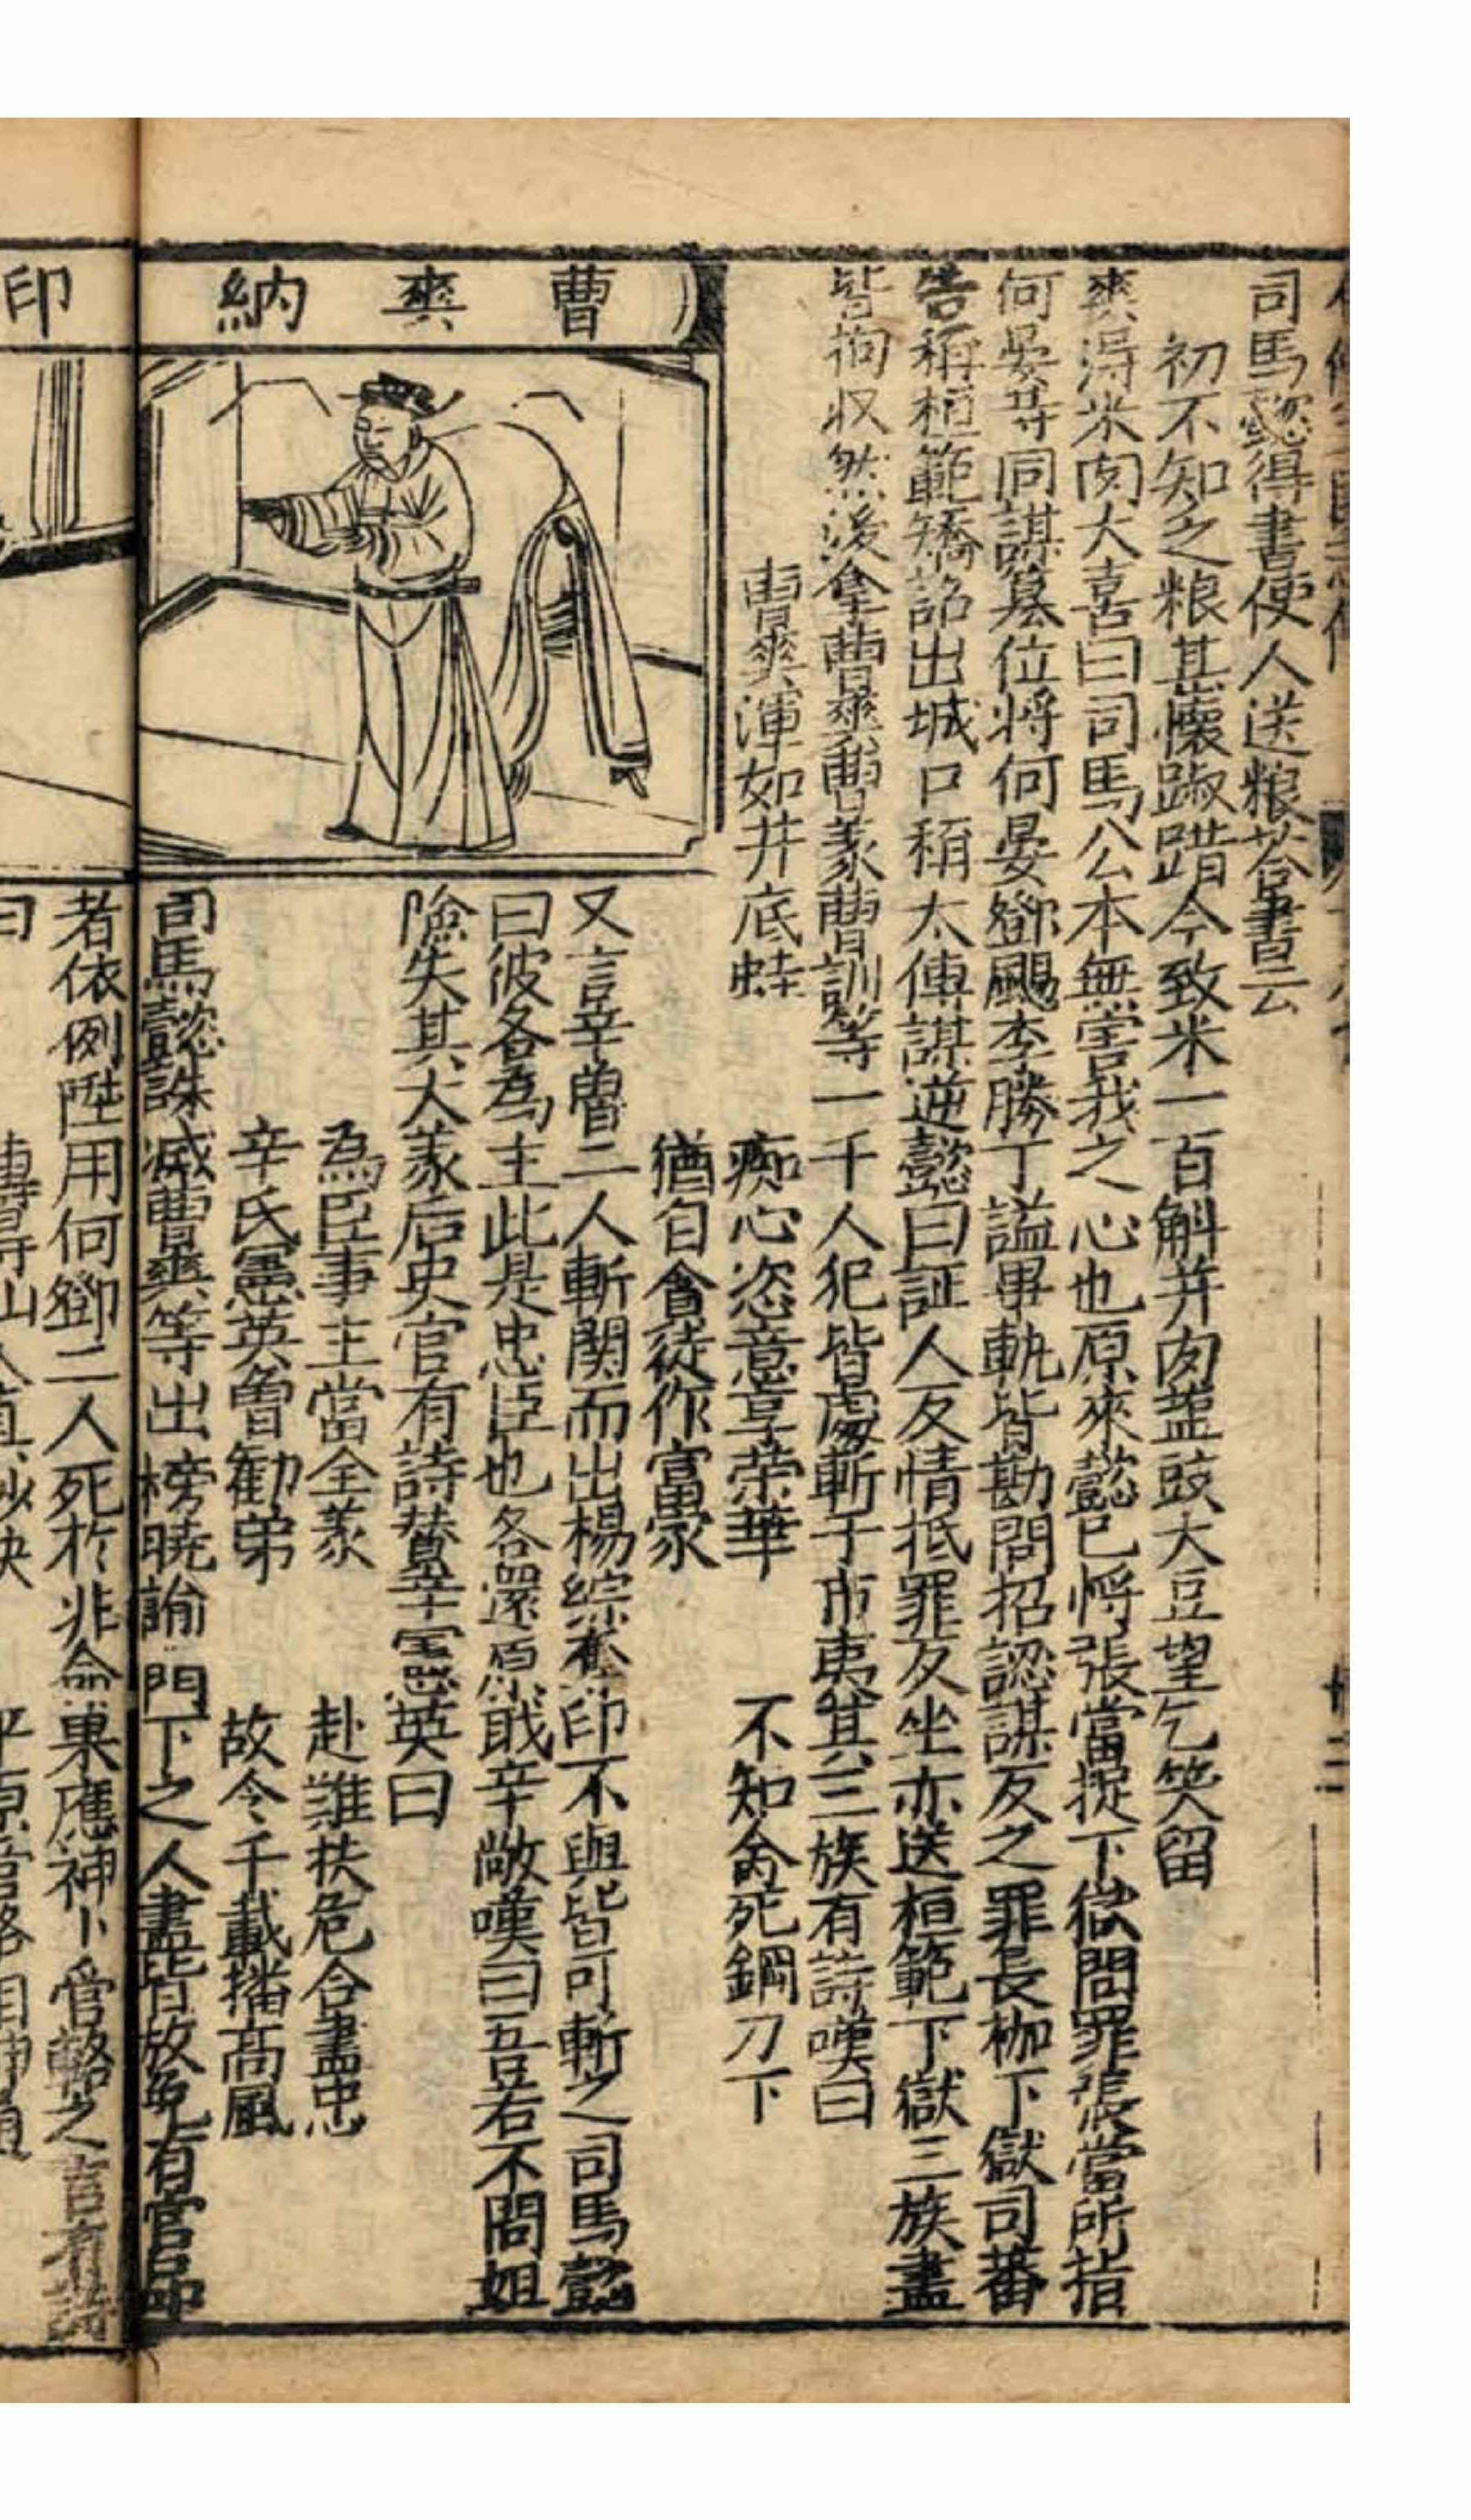 司馬懿得書使人送粮荅書云
初不知之粮甚懷踧踖今致米一百斛并肉䀋豉大豆望乞笑留
爽得米肉大喜曰司馬公本無害我之心也原來懿已將張當捉下獄問罪張當所指
何晏等同謀篡位將何晏鄧颺李勝丁謐畢軌皆勘問招認謀反之罪長枷下獄司蕃
告稱桓範矯詔出城口稱太傅謀逆懿曰証人反情抵罪反坐亦送桓範下獄三族盡
皆拘収然後拿曹爽曹羲曹訓等一千人犯皆處斬于市夷其三族有詩嘆曰
曹爽渾如井底蛙 痴心恣意享荣華 不知命死鋼刀下
猶自貪徒作富豪
曹爽納
又言辛魯二人斬関而出楊綜奪印不與皆可斬之司馬懿
曰彼各為主此是忠臣也各還原戝辛敞嘆曰吾若不問姐
險失其大義后史官有詩賛辛憲英曰
為臣事主當全義 赴難扶危合盡忠
辛氏憲英曾勧弟 故令千載播高風
司馬懿誅滅曹爽等出榜暁諭門下之人盡皆放免有官
印
者依例陞用何鄧二人死於非命果應神卜管輅之言有詩
曰